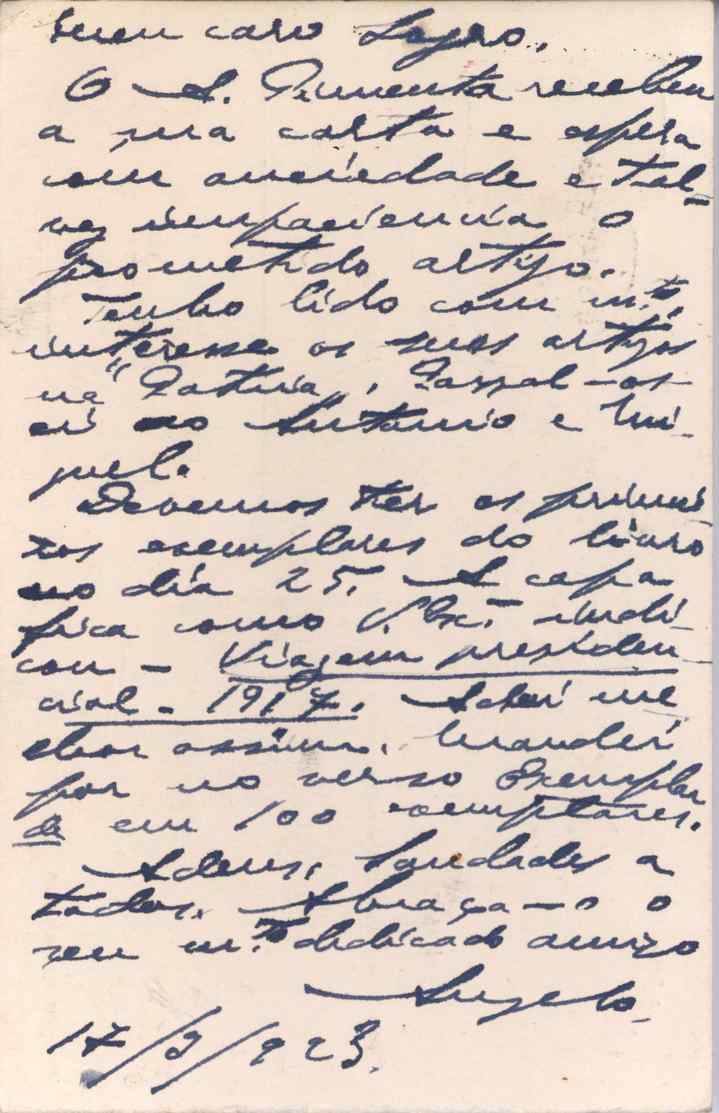 Meu caro Sogro.
O A. Pimenta recebeu
a sua carta e espera
com anciedade e tal-
vez impaciencia o
prometido artigo.
Tenho lido com m.to
interesse os seus artigos
na "Patria". Passal-os-
ei ao Antonio e Mi-
guel.
Devemos ter os primei
ros exemplares do livro
no dia 25. A capa
fica como V. Ex.ª indi
cou - Viagem presiden-
cial - 1917. Achei me
lhor assim. Mandei
por no verso Exemplar
de em 100 exemplares.
Adeus. Saudades a
todos. Abraça-o o
seu m.to dedicado amigo
Angelo
17/9/923.